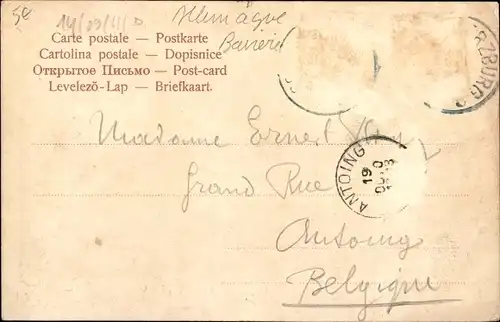 5€
Allemagne
Bavière
Carte postale — Postkarte
Cartolina postale — Dopisnice
Открытое Письмо — Post-card
Levelező-Lap — Briefkaart.
RZBURG 2
Madame Ernest
ANTOING
19
Grand Rue
Antoing
Belgique